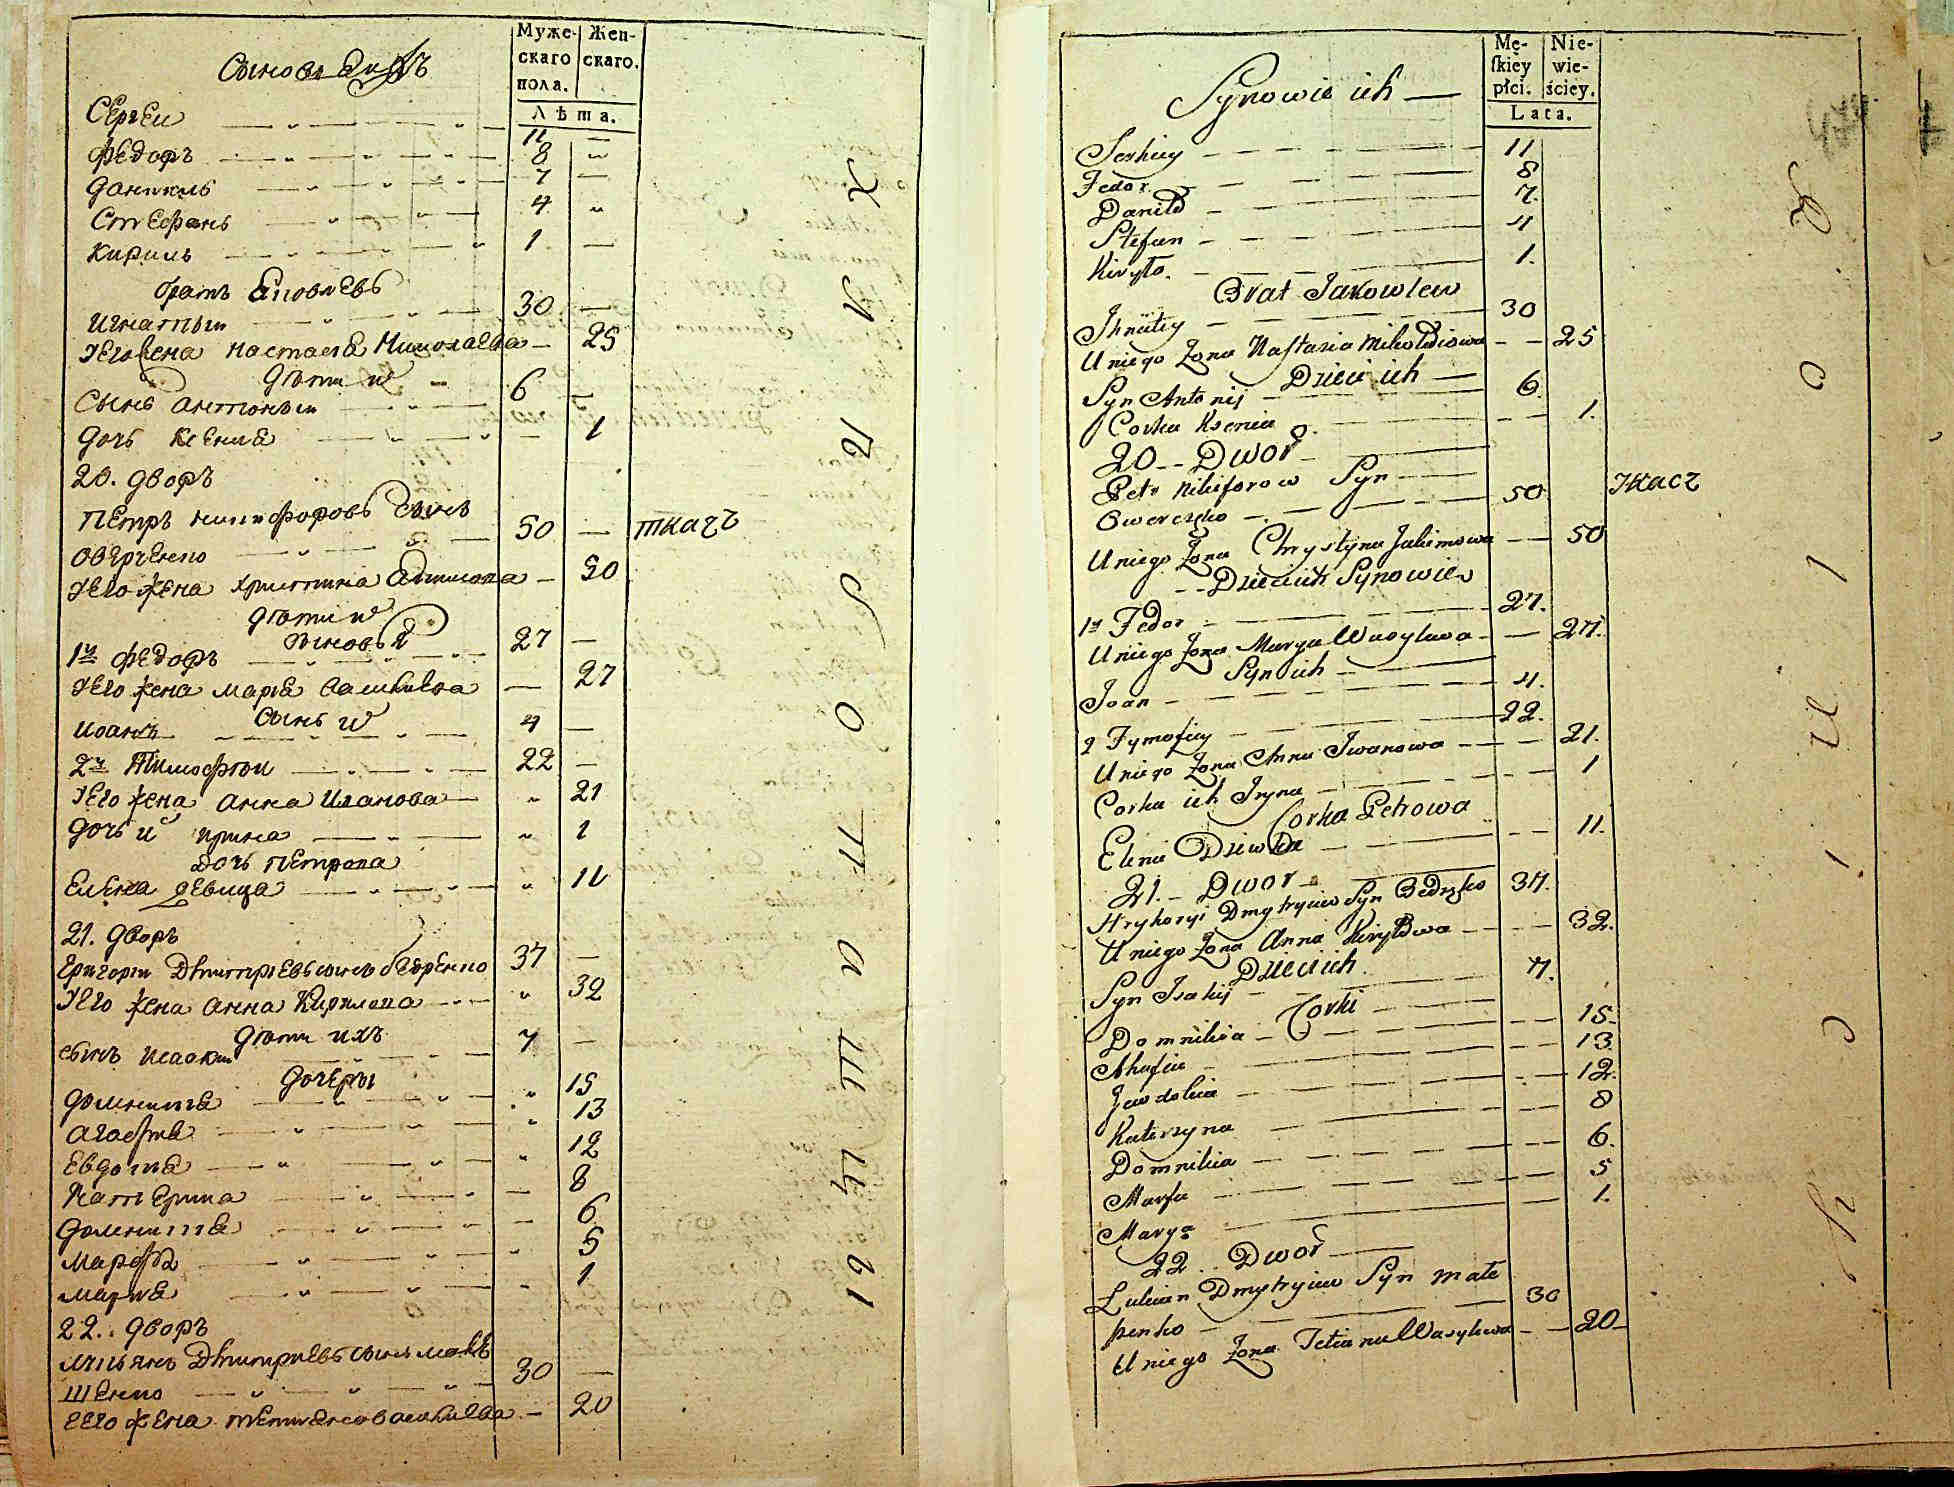 Муже-
скаго
пола.
Жен-
скаго.
Лѣта.
Сынов
Сергеи 11
Федоръ 8
Данииль 7
Стефань 4
Кирилъ 1
братъ Яковлевъ
Игнатыи 30
Его жена Настасія Николаева 25
дѣти
Сынъ Антоныи 6
дочь Ксенія 1
20. дворъ
Петръ Никифоровъ Сынъ 50 ткачъ
Его жена Христина 50
дѣти
1й Федоръ 27
Его жена Марія 27
Сынъ
Иоаннъ 4
2й Тимофѣи 22
Его жена Анна Иванова 21
дочь Ирина 1
дочь Петрова
Елена девица 11
21. дворъ
Григорій Дмитріевъ сынъ 37
Его жена Анна Кирилова 32
Дѣти ихъ
сынъ Исакіи 7
Дочеры
Домникія 15
Агафія 13
Евдокія 12
Катерина 8
Домникія 6
Марфа 5
Марія 1
22. дворъ
Лукьянъ Дмитріевъ сынъ
30
Его жена 20
Mę-
ſkiey
płci.
Nie-
wie-
ściey.
Lata.
Synowie ich
Serhiey 11
Fedor 8
Daniło 7.
Stefan 4
Kiryło. 1.
Brat Jakowlew
Ihnatiy 30
U niego Żona Nastazia Mikołaiowa 25
Dzieci ich
Syn Antonij 6
Corka Ksenia 1.
20 Dwor
Petr Nikiforow Syn
Owerczeko 50 Tkacz
U niego Żona Chrystyna Jakimowa 50
Dzieci ich Synowie
1y Fedor 27.
U niego Żona Marya Wasylowa 27.
Syn ich
Joan 4.
2 Tymofiey 22.
U niego Żona Anna Iwanowa 21.
Corka ich Iryna 1
Corka Petrowa
Elena Dziewka 11.
21. Dwor
Hryhoryi Dmytryiew Syn 37.
U niego Żona Anna Kiryłowa 32.
Dzieci ich
Syn Isakij 7.
Corki
Domnikia 15.
Ahafia 13.
Jewdokia 12.
Katerzyna 8
Domnikia 6.
Marfa 5
Marya 1.
22. Dwor
Lukian Dmytryiew Syn Mate
penko 30
U niego Żona Tetiana Wasylowa 20